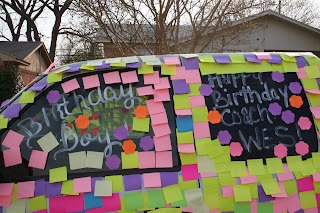 Birthday
Boy
Happy
Birthday
COACH
WES!